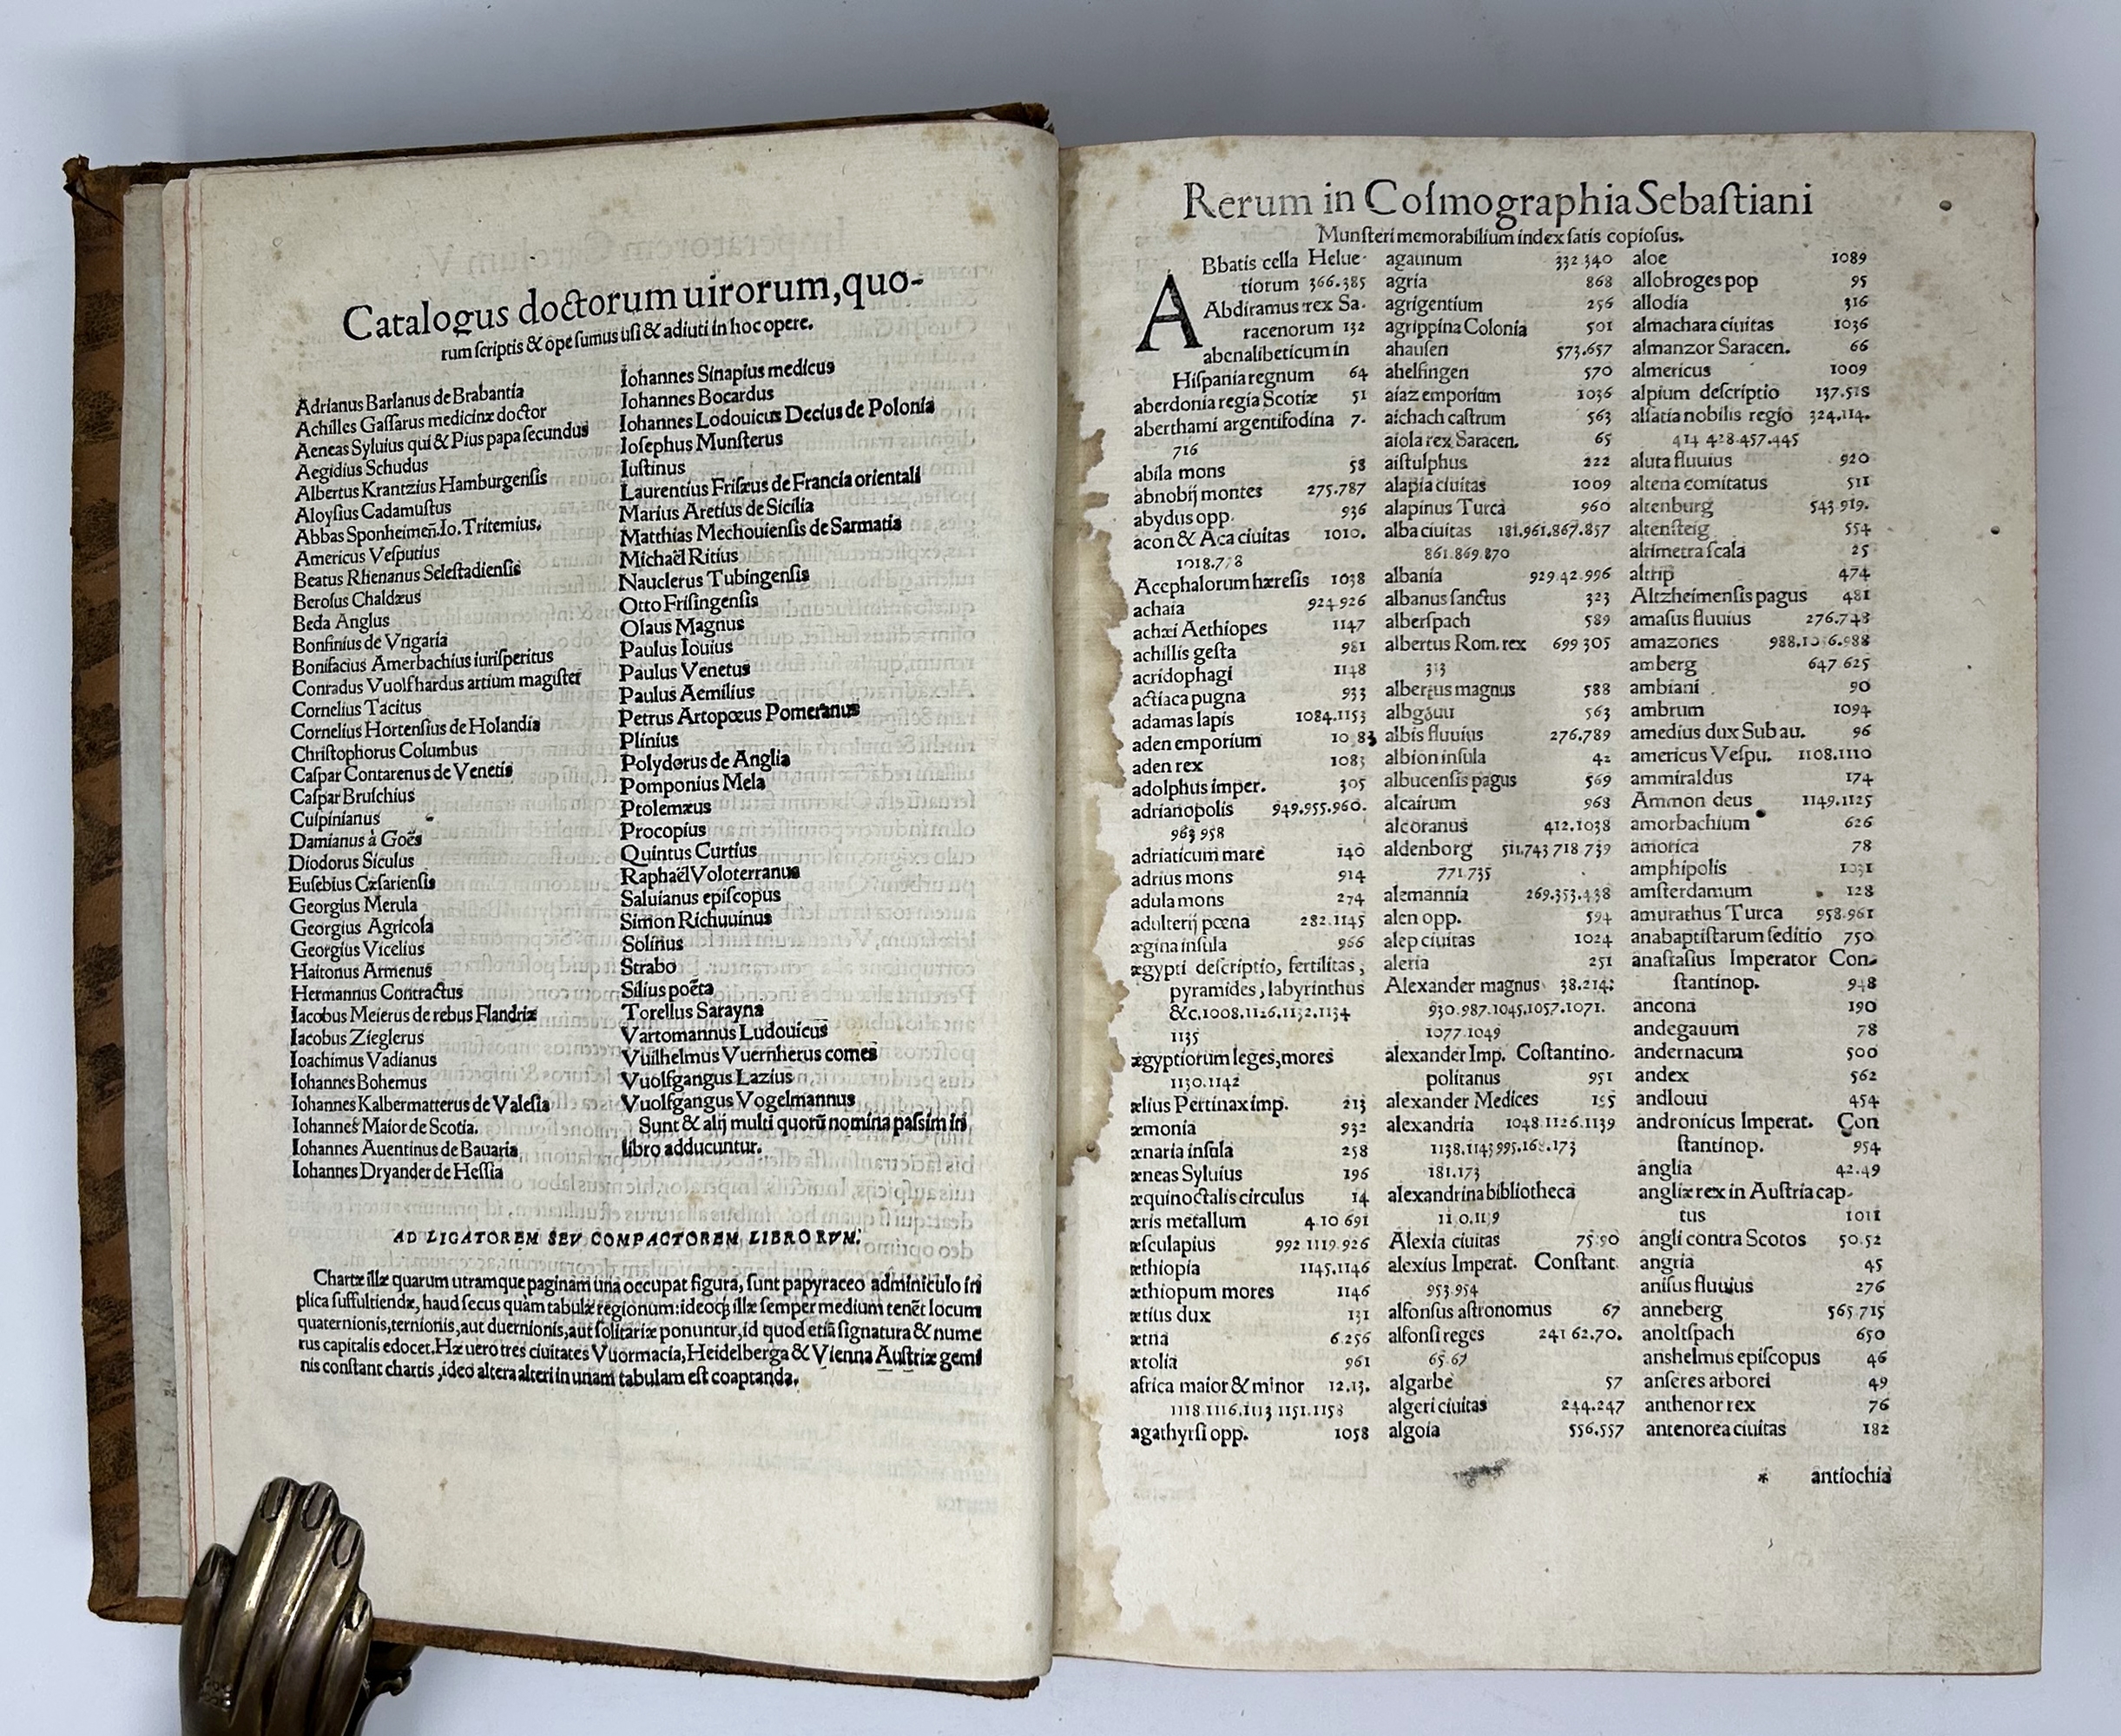 Catalogus doctorum uirorum, quo-
rum ſcriptis & ope ſumus uſi & adiuti in hoc opere.
Adrianus Barlanus de Brabantia
Achilles Gaſſarus medicinæ doctor
Aeneas Syluius qui & Pius papa ſecundus
Aegidius Schudus
Albertus Krantzius Hamburgenſis
Aloyſius Cadamuſtus
Abbas Sponheimeñ. Io. Tritemius.
Americus Veſputius
Beatus Rhenanus Seleſtadienſis
Beroſus Chaldæus
Beda Anglus
Bonfinius de Vngaria
Bonifacius Amerbachius iuriſperitus
Conradus Vuolfhardus artium magiſter
Cornelius Tacitus
Cornelius Hortenſius de Holandia
Chriſtophorus Columbus
Caſpar Contarenus de Venetis
Caſpar Bruſchius
Cuſpinianus
Damianus à Goës
Diodorus Siculus
Euſebius Cæſarienſis
Georgius Merula
Georgius Agricola
Georgius Vicelius
Haitonus Armenus
Hermannus Contractus
Iacobus Meierus de rebus Flandriæ
Iacobus Zieglerus
Ioachimus Vadianus
Iohannes Bohemus
Iohannes Kalbermatterus de Valeſia
Iohannes Maior de Scotia.
Iohannes Auentinus de Bauaria
Iohannes Dryander de Heſſia
Iohannes Sinapius medicus
Iohannes Bocardus
Iohannes Lodouicus Decius de Polonia
Ioſephus Munſterus
Iuſtinus
Laurentius Friſæus de Francia orientali
Marius Aretius de Sicilia
Matthias Mechouienſis de Sarmatia
Michaël Ritius
Nauclerus Tubingenſis
Otto Friſingenſis
Olaus Magnus
Paulus Iouius
Paulus Venetus
Paulus Aemilius
Petrus Artopœus Pomeranus
Plinius
Polydorus de Anglia
Pomponius Mela
Ptolemæus
Procopius
Quintus Curtius
Raphaël Voloterranus
Saluianus epiſcopus
Simon Richuuinus
Solinus
Strabo
Silius poëta
Torellus Sarayna
Vartomannus Ludouicus
Vuilhelmus Vuernherus comes
Vuolfgangus Lazius
Vuolfgangus Vogelmannus
Sunt & alij multi quorū nomina paſsim in
libro adducuntur.
AD LIGATOREM SEV COMPACTOREM LIBRORVM.
Chartæ illæ quarum utramque paginam una occupat figura, ſunt papyraceo adminiculo in
plica ſuffultiendæ, haud ſecus quàm tabulæ regionum: ideoq́; illæ ſemper medium tenẽt locum
quaternionis, ternionis, aut duernionis, aut ſolitariæ ponuntur, id quod etiã ſignatura & nume
rus capitalis edocet. Hæ uero tres ciuitates Vuormacia, Heidelberga & Vienna Auſtriæ gemi
nis conſtant chartis, ideo altera alteri in unam tabulam eſt coaptanda.
Rerum in Coſmographia Sebaſtiani
Munſteri memorabilium index ſatis copioſus.
ABbatis cella Helue-
tiorum 366.385
Abdiramus rex Sa-
racenorum 132
abenalibeticum in
Hiſpania regnum 64
aberdonia regia Scotiæ 51
aberthami argentifodina 7.
716
abila mons 58
abnobij montes 275.787
abydus opp. 936
acon & Aca ciuitas 1010.
1018.778
Acephalorum hæreſis 1038
achaia 924.926
achæi Aethiopes 1147
achillis geſta 981
acridophagi 1148
actiaca pugna 933
adamas lapis 1084.1153
aden emporium 1083
aden rex 1083
adolphus imper. 305
adrianopolis 949.955.960.
963 958
adriaticum mare 140
adrius mons 914
adula mons 274
adulterij pœna 282.1145
ægina inſula 966
ægypti deſcriptio, fertilitas,
pyramides, labyrinthus
&c. 1008.1126.1132.1134
1135
ægyptiorum leges, mores
1130.1142
ælius Pertinax imp. 213
æmonia 932
ænaria inſula 258
æneas Syluius 196
æquinoctalis circulus 14
æris metallum 4.10 691
æſculapius 992.1119.926
æthiopia 1145.1146
æthiopum mores 1146
ætius dux 131
ætna 6.256
ætolia 961
africa maior & minor 12.13.
1118.1116.1113 1151.1153
agathyrſi opp. 1058
agaunum 332 340
agria 868
agrigentium 256
agrippina Colonia 501
ahauſen 573.657
ahelfingen 570
aiaz emporium 1036
aichach caſtrum 563
aiola rex Saracen. 65
aiſtulphus 222
alapia ciuitas 1009
alapinus Turca 960
alba ciuitas 181.961.867.857
861.869.870
albania 929.42.996
albanus ſanctus 323
alberſpach 589
albertus Rom. rex 699 305
313
albertus magnus 588
albgӡuu 563
albis fluuius 276.789
albion inſula 42
albucenſis pagus 569
alcairum 968
alcoranus 412.1038
aldenborg 511.743 718 739
771.735
alemannia 269.353.438
alen opp. 594
alep ciuitas 1024
aleria 251
Alexander magnus 38.214;
930.987.1045.1057.1071.
1077.1049
alexander Imp. Coſtantino-
politanus 951
alexander Medices 195
alexandria 1048.1126.1139
181.173
alexandrina bibliotheca
Alexia ciuitas 75.90
alexius Imperat. Conſtant.
953.954
alfonſus aſtronomus 67
alfonſi reges 241 62.70.
65.67
algarbe 57
algeri ciuitas 244.247
algoia 556.557
aloe 1089
allobroges pop 95
allodia 316
almachara ciuitas 1036
almanzor Saracen. 66
almericus 1009
alpium deſcriptio 137.518
alſatia nobilis regio 324.114.
414 428.457.445
aluta fluuius 920
altena comitatus 511
altenburg 543.919.
altenſteig 554
altimetra ſcala 25
altrip 474
Altzheimenſis pagus 481
amaſus fluuius 276.743
amazones 988.1036.988
amberg 647 625
ambiani 90
ambrum 1094
amedius dux Subau. 96
americus Veſpu. 1108.1110
ammiraldus 174
Ammon deus 1149.1125
amorbachium 626
amorica 78
amphipolis 1031
amſterdamum 128
amurathus Turca 958.961
anabaptiſtarum ſeditio 750
anaſtaſius Imperator Con-
ſtantinop. 948
ancona 190
andegauum 78
andernacum 500
andex 562
andlouu 454
andronicus Imperat. Con
ſtantinop. 954
anglia 42.49
angliæ rex in Auſtria cap-
tus 1011
angli contra Scotos 50.52
angria 45
aniſus fluuius 276
anneberg 565 715
anoltſpach 650
anshelmus epiſcopus 46
anſeres arborei 49
anthenor rex 76
antenorea ciuitas 182
* antiochia